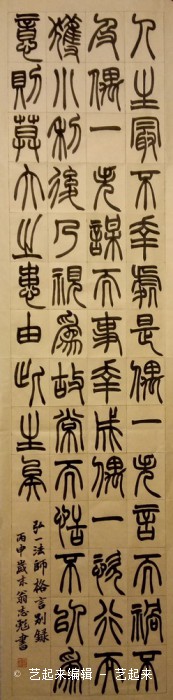 人生最不幸處是偶一失言而禍不
及偶一失謀而事幸成偶一恣行而
獲小利後乃視爲故常而恬不以爲
意則莫大之患由此生矣
弘一法師格言別録
丙申歲末翁志彪書
© 艺起来编辑 - 艺起来